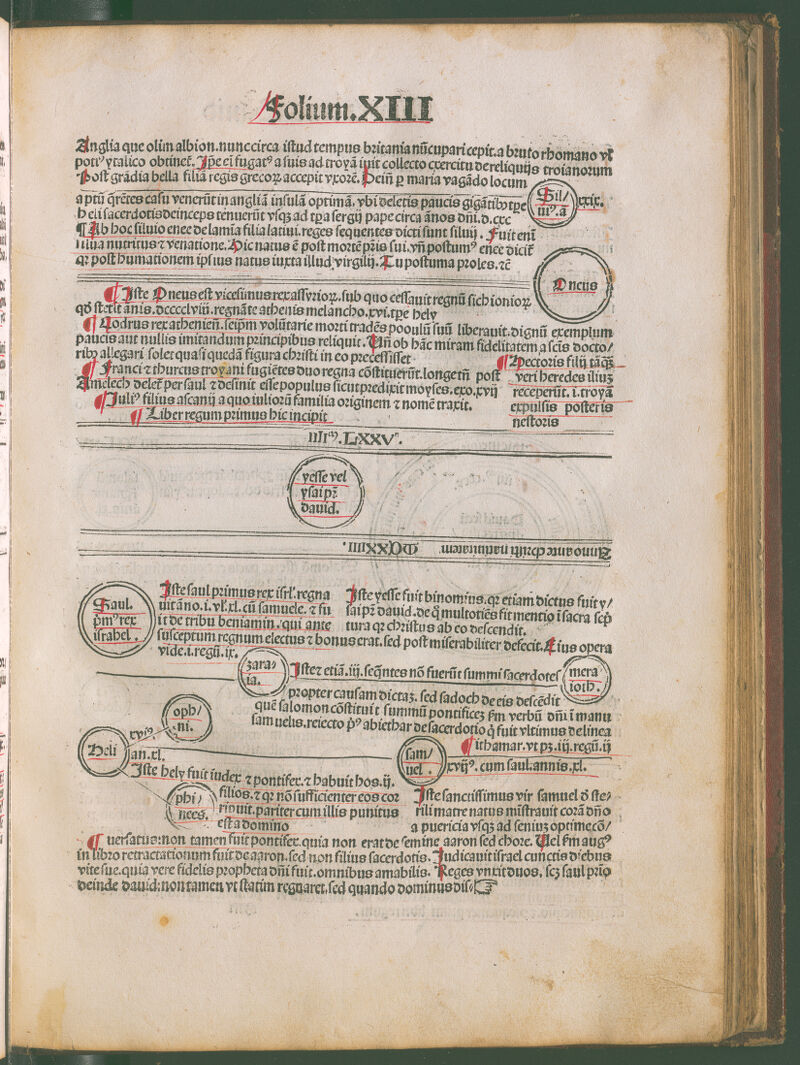 Folium.XIII
Anglia que olim albion.nunc circa istud tempus britania nūcupari cepit.a bruto rhomano vt
potiꝰ ytalico obtinet̄. Ip̄e em̄ fugatꝰ a suis ad troyā iuit collecto exercitu de reliquijs troianorum
Post grādia bella filiā regis grecorꝝ accepit vxorē. Dein̄ ꝑ maria vagādo locum
aptū q̄rētes casu venerūt in angliā insulā optimā. vbi deletis paucis gigātibꝰ tꝑe
heli sacerdotis deinceps tenuerūt vsqꝫ ad tꝑa sergij pape circa ānos dn̄i.d.cxc
¶ Ab hoc siluio enee de lamīa filia latini.reges sequentes dicti sunt siluij. Fuit em̄
i silua nutritus ⁊ venatione. Hic natus ē post mortē pr̄is sui.vn̄ postumꝰ enee dicit̄
qꝛ post humationem ipsius natus iuxta illud virgilij. Tu postuma proles.⁊c̄
Sil/
uiꝰ.a
xxix.
Oneus
¶ Iste Oneus est vicesimus rex assyrioꝝ.sub quo cessauit regnū sichionioꝝ
qd̄ stetit anis.dcccclviii.regnāte athenis melancho.xvi.tꝑe hely
¶ Codrus rex athenien̄.seip̄m volūtarie morti tradēs populū suū liberauit.dignū exemplum
paucis aut nullis imitandum principibus reliquit. Vn̄ ob hāc miram fidelitatem a sc̄is docto/
ribꝰ allegari solet quasi quedā figura christi in eo precessisset
¶ Franci ⁊ thurcus troyani fugiētes duo regna cōstituerūt.longe tn̄ post
Amelech delet̄ per saul ⁊ desinit esse populus sicut predixit moyses.exo.xvij
¶ Iuliꝰ filius ascanij a quo iuliorū familia originem ⁊ nomē traxit.
¶ Liber regum primus hic incipit
¶ Hectoris filij tāqꝫ
veri heredes iliuꝫ
receperūt.i.troyā
expulsis posteris
nestoris
IIIIᵐ.LXXVᵒ.
yesse vel
ysai pr̄
dauid.
Anno ante christi natiuitatem MCXXIIII.
Saul.
pm̄ꝰ rex
israhel.
Iste saul primus rex isrl̄.regna
uit āno.i.vl̓.xl.cū samuele.⁊ fu
it de tribu beniamin.qui ante
susceptum regnum electus ⁊ bonus erat.sed post miserabiliter defecit. Eius opera
vide.i.regū.ix.
Iste yesse fuit binomius.qꝛ etiam dictus fuit y/
sai pr̄ dauid.de q̄ multotiēs fit mentio ī sacra scp̄
tura qꝛ christus ab eo descendit.
ʒara/
ia.
Isteꝫ etiā.iij.seq̄ntes nō fuerūt summi sacerdotes
propter causam dictaꝫ.sed sadoch de eis descēdit
quē salomon cōstituit summū pontificeꝫ ẜm verbū dn̄i ī manu
samuelis.reiecto pꝰ abiethar de sacerdotio q̄ fuit vltimus de linea
¶ ithamar.vt pꝫ.iij.regū.ij
mera
ioth.
oph/
ni.
Heli
xviꝰ
an.xl.
sam/
uel.
xvijꝰ.cum saul.annis.xl.
Iste hely fuit iudex ⁊ pontifex.⁊ habuit hos.ij.
filios.⁊ qꝛ nō sufficienter eos cor
ripuit.pariter cum illis punitus
est a domino
phi/
nees.
Iste sanctissimus vir samuel d̄ ste/
rili matre natus mīstrauit corā dn̄o
a puericia vsqꝫ ad seniuꝫ optime cō/
¶ uersatus:non tamen fuit pontifex.quia non erat de semine aaron.sed chore. Vel ẜm augꝰ
in libro retractationum fuit de aaron.sed non filius sacerdotis. Iudicauit israel cunctis diebus
vite sue.quia vere fidelis propheta dn̄i fuit.omnibus amabilis. Reges vnxit duos.scꝫ saul prīo
deinde dauid:non tamen vt statim regnaret.sed quando dominus dis/☞